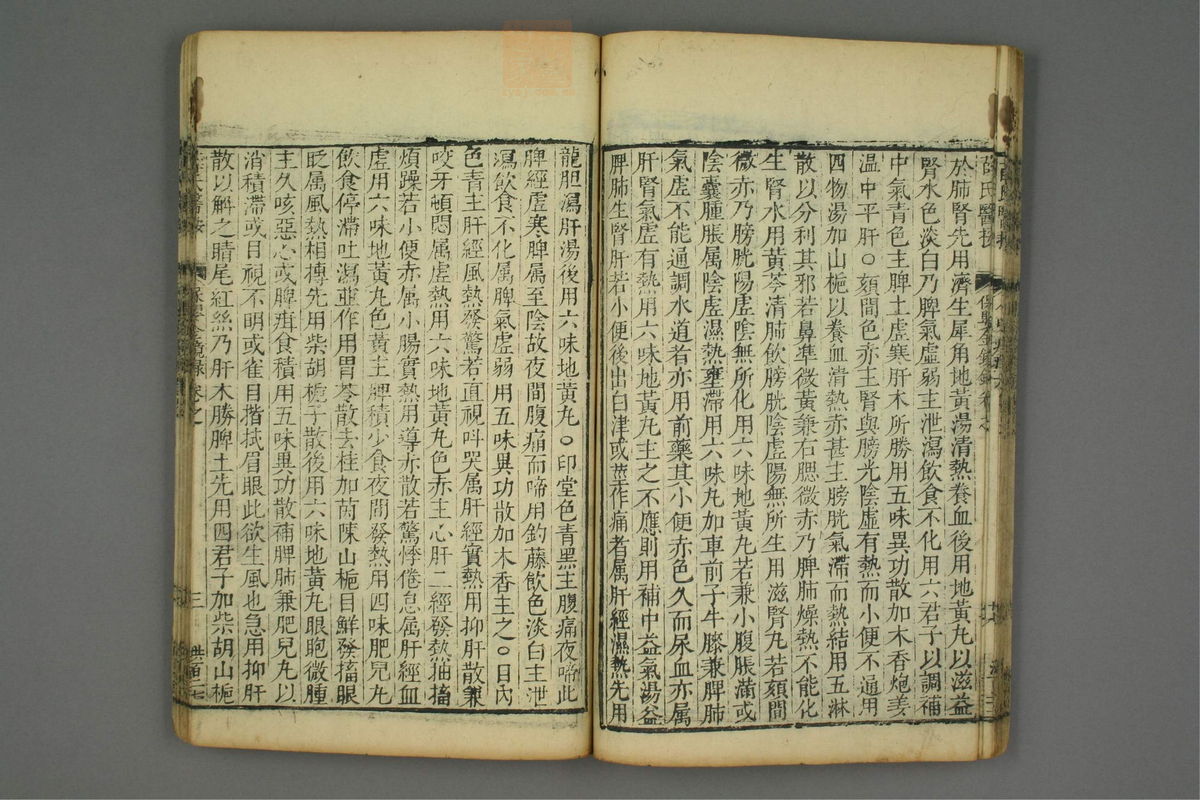 薛氏醫按
保嬰金鏡錄卷之
於肺腎先用濟生犀角地黃湯清熱養血後用地黃丸以滋益
腎水色淡白乃脾氣虛弱主泄瀉飲食不化用六君子以調補
中氣青色主脾土虛寒肝木所勝用五味異功散加木香炮姜
溫中平肝○頦間色赤主腎與膀光陰虛有熱而小便不通用
四物湯加山梔以養血清熱赤甚主膀胱氣滯而熱結用五淋
散以分利其邪若鼻準微黃兼右腮微赤乃脾肺燥熱不能化
生腎水用黃芩清肺飲膀胱陰虛陽無所生用滋腎丸若頦間
微赤乃膀胱陽虛陰無所化用六味地黃丸若兼小腹脹滿或
陰囊腫脹属陰虛濕熱壅滯用六味丸加車前子牛膝兼脾肺
氣虛不能通調水道者亦用前藥其小便赤色久而尿血亦属
肝腎氣虛有熱用六味地黃丸主之不應則用補中益氣湯益
脾肺生腎肝若小便後出白津或莖作痛者属肝經濕熱先用
龍胆瀉肝湯後用六味地黃丸○印堂色青黑主腹痛夜啼此
脾經虛寒脾属至陰故夜間腹痛而啼用釣藤飲色淡白主泄
瀉飲食不化属脾氣虛弱用五味異功散加木香主之○目內
色青主肝經風熱發驚若直視呌哭属肝經實熱用抑肝散兼
咬牙頓悶属虛熱用六味地黃丸色赤主心肝二經發熱抽搐
煩躁若小便赤属小腸實熱用導赤散若驚悸倦怠属肝經血
虛用六味地黃丸色黃主脾積少食夜間發熱用四味肥兒丸
飲食停滯吐瀉並作用胃苓散去桂加茵陳山梔目鮮發搐眼
眨属風熱相搏先用柴胡梔子散後用六味地黃丸眼胞微腫
主久咳惡心或脾疳食積用五味異功散補脾肺兼肥兒丸以
消積滯或目視不明或雀目揩拭眉眼此欲生風也急用抑肝
散以解之睛尾紅絲乃肝木勝脾土先用四君子加柴胡山梔
卷之
三